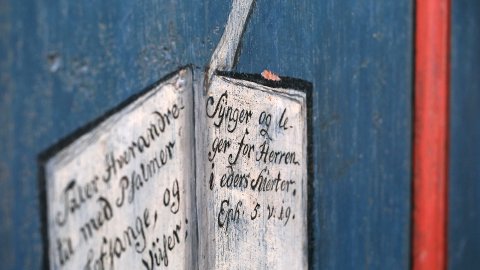 Taler Hverandre
til med Psalmer
Lofsange, og
Viiser;
Synger og le-
ger for Herren
i eders Hierter.
Eph: 5. v. 19.